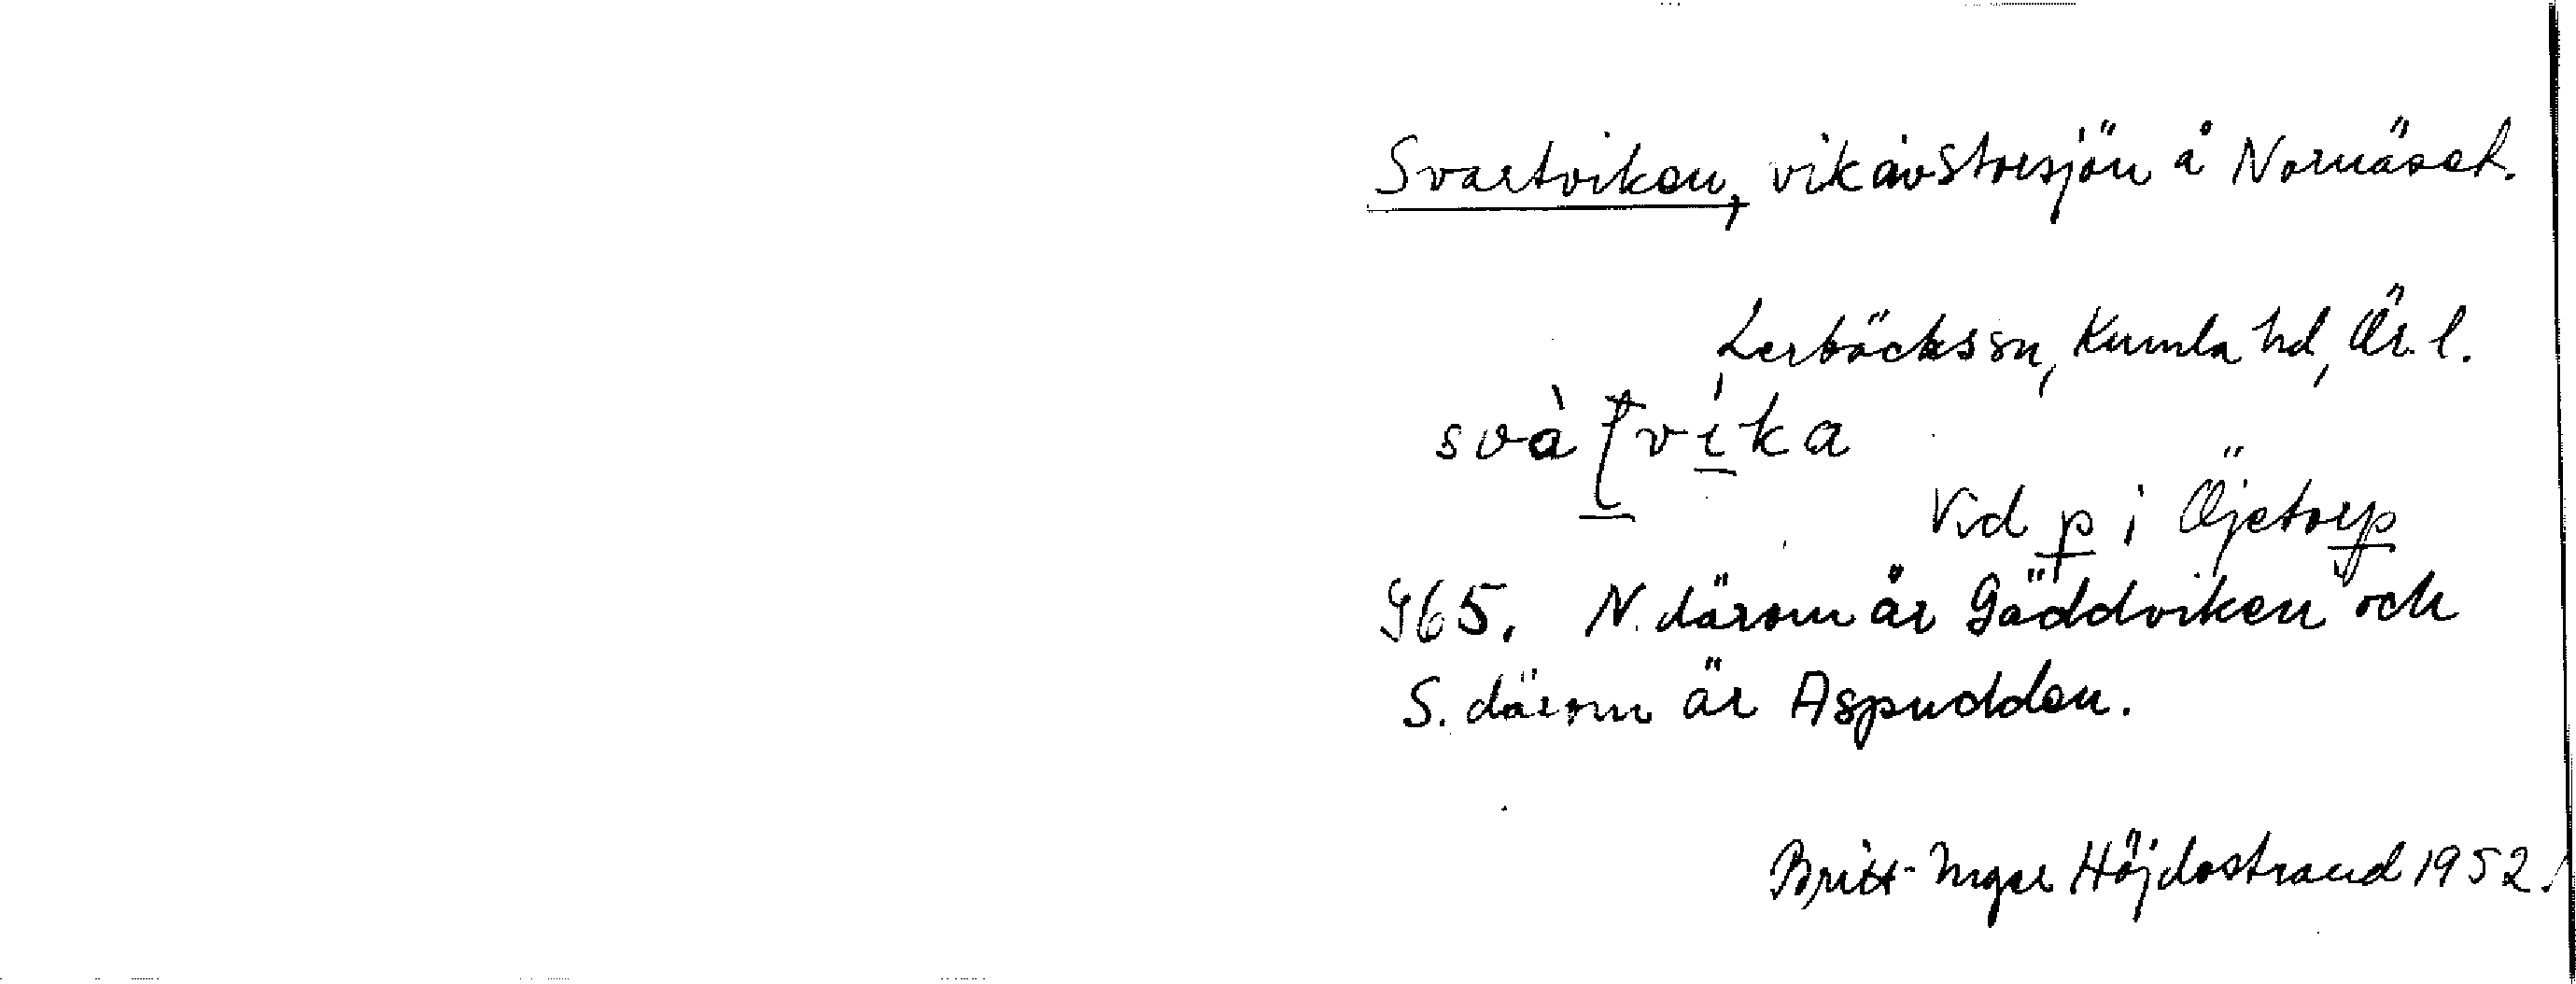 Svartviken, vik av Storsjön å Nornäset.
Lerbäcks sn, Kumla hd, Ör. l.
svàʈvíka
Vid p i Öjetorp
965. N. därom är Gäddviken och
S. därom är Aspudden.
Britt-Inger Höjdestrand 1952.